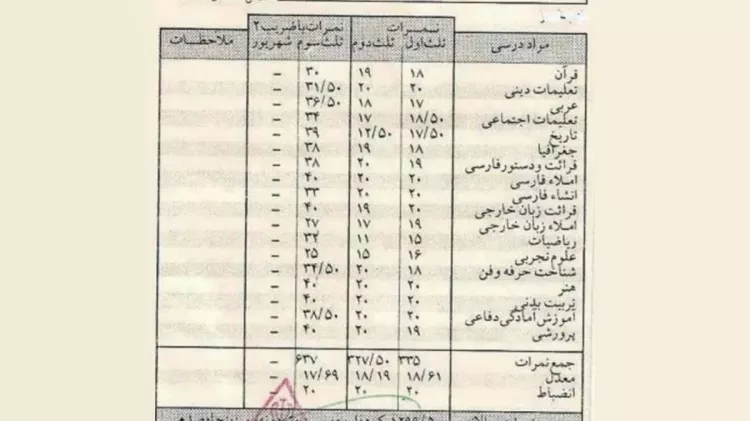 مواد درسی نمرات نمرات با ضریب ۲ ملاحظات
ثلث اول ثلث دوم ثلث سوم شهریور
قرآن ۱۸ ۱۹ ۳۰ –
تعلیمات دینی ۲۰ ۲۰ ۳۱/۵۰ –
عربی ۱۷ ۱۸ ۳۶/۵۰ –
تعلیمات اجتماعی ۱۸/۵۰ ۱۷ ۳۴ –
تاریخ ۱۷/۵۰ ۱۲/۵۰ ۳۹ –
جغرافیا ۱۸ ۱۹ ۳۸ –
قرائت و دستور فارسی ۱۹ ۲۰ ۳۸ –
املاء فارسی ۲۰ ۲۰ ۴۰ –
انشاء فارسی ۲۰ ۲۰ ۳۳ –
قرائت زبان خارجی ۲۰ ۱۹ ۴۰ –
املاء زبان خارجی ۱۹ ۱۷ ۲۷ –
ریاضیات ۱۵ ۱۱ ۳۲ –
علوم تجربی ۱۶ ۱۵ ۲۵ –
شناخت حرفه و فن ۱۸ ۲۰ ۳۴/۵۰ –
هنر ۲۰ ۲۰ ۴۰ –
تربیت بدنی ۲۰ ۲۰ ۴۰ –
آموزش آمادگی دفاعی ۲۰ ۲۰ ۳۸/۵۰ –
پرورشی ۱۹ ۲۰ ۴۰ –
جمع نمرات ۳۳۵ ۳۲۷/۵۰ ۶۳۷ –
معدل ۱۸/۶۱ ۱۸/۱۹ ۱۷/۶۹ –
انضباط ۲۰ ۲۰ ۲۰ –